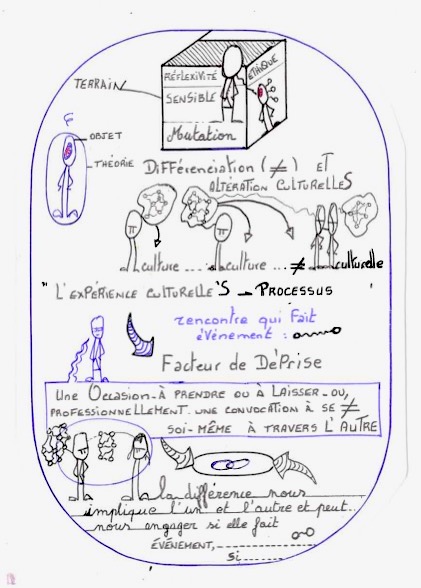 TERRAIN
RÉFLEXIVITÉ
SENSIBLE
Mutation
ÉTHIQUE
OBJET
THÉORIE
DIFFÉRENCIATION (≠) ET
ALTÉRATION CULTURELLES
culture .... culture ... ≠ culturelle
" L'EXPÉRIENCE CULTURELLE'S _ PROCESSUS '
rencontre qui fait
événement :
FACTEUR DE DÉPRISE
UNE OCCASION À PRENDRE OU À LAISSER OU,
PROFESSIONNELLEMENT UNE CONVOCATION À SE ≠
SOI-MÊME À TRAVERS L'AUTRE
la différence nous
implique l'un et l'autre et peut..
nous engager si elle fait
ÉVÉNEMENT,
si